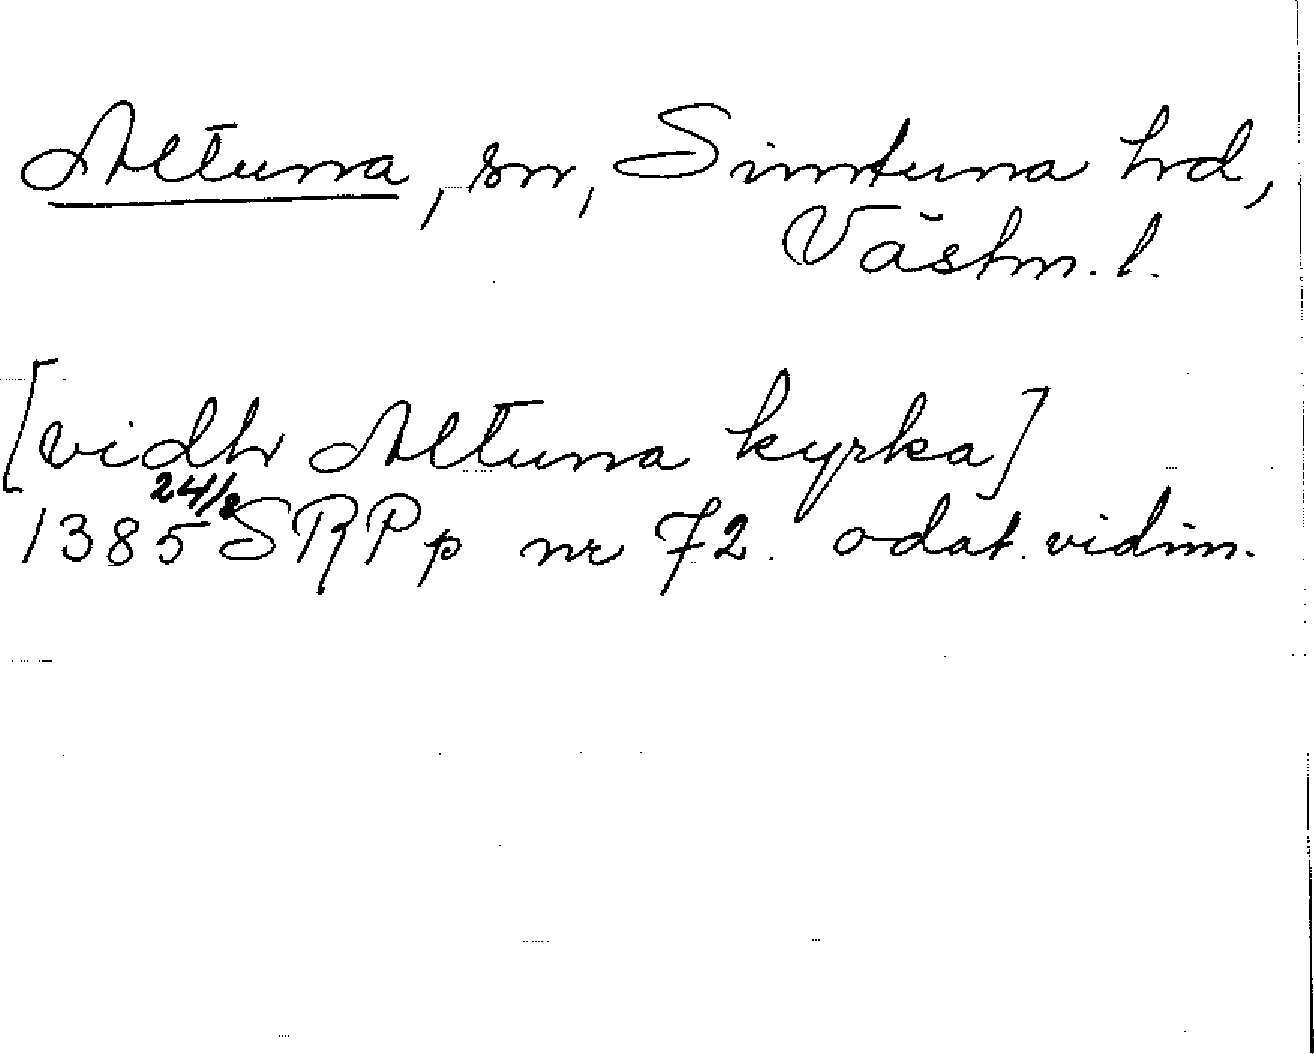 Altuna, sn, Simtuna hd,
Västm. l.
[vidh Altuna kyrka]
1385 24/8 SRPp nr 72. odat. vidim.